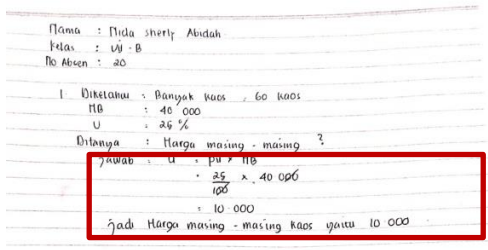 Nama : Nida sherly Abidah
Kelas : VII - B
No Absen : 20
1. Diketahui : Banyak kaos : 60 kaos
HB : 40 000
U : 25 %
Ditanya : Harga masing - masing ?
Jawab : U = PU × HB
= 25/100 × 40 000
= 10 000
Jadi Harga masing - masing kaos yaitu 10 000